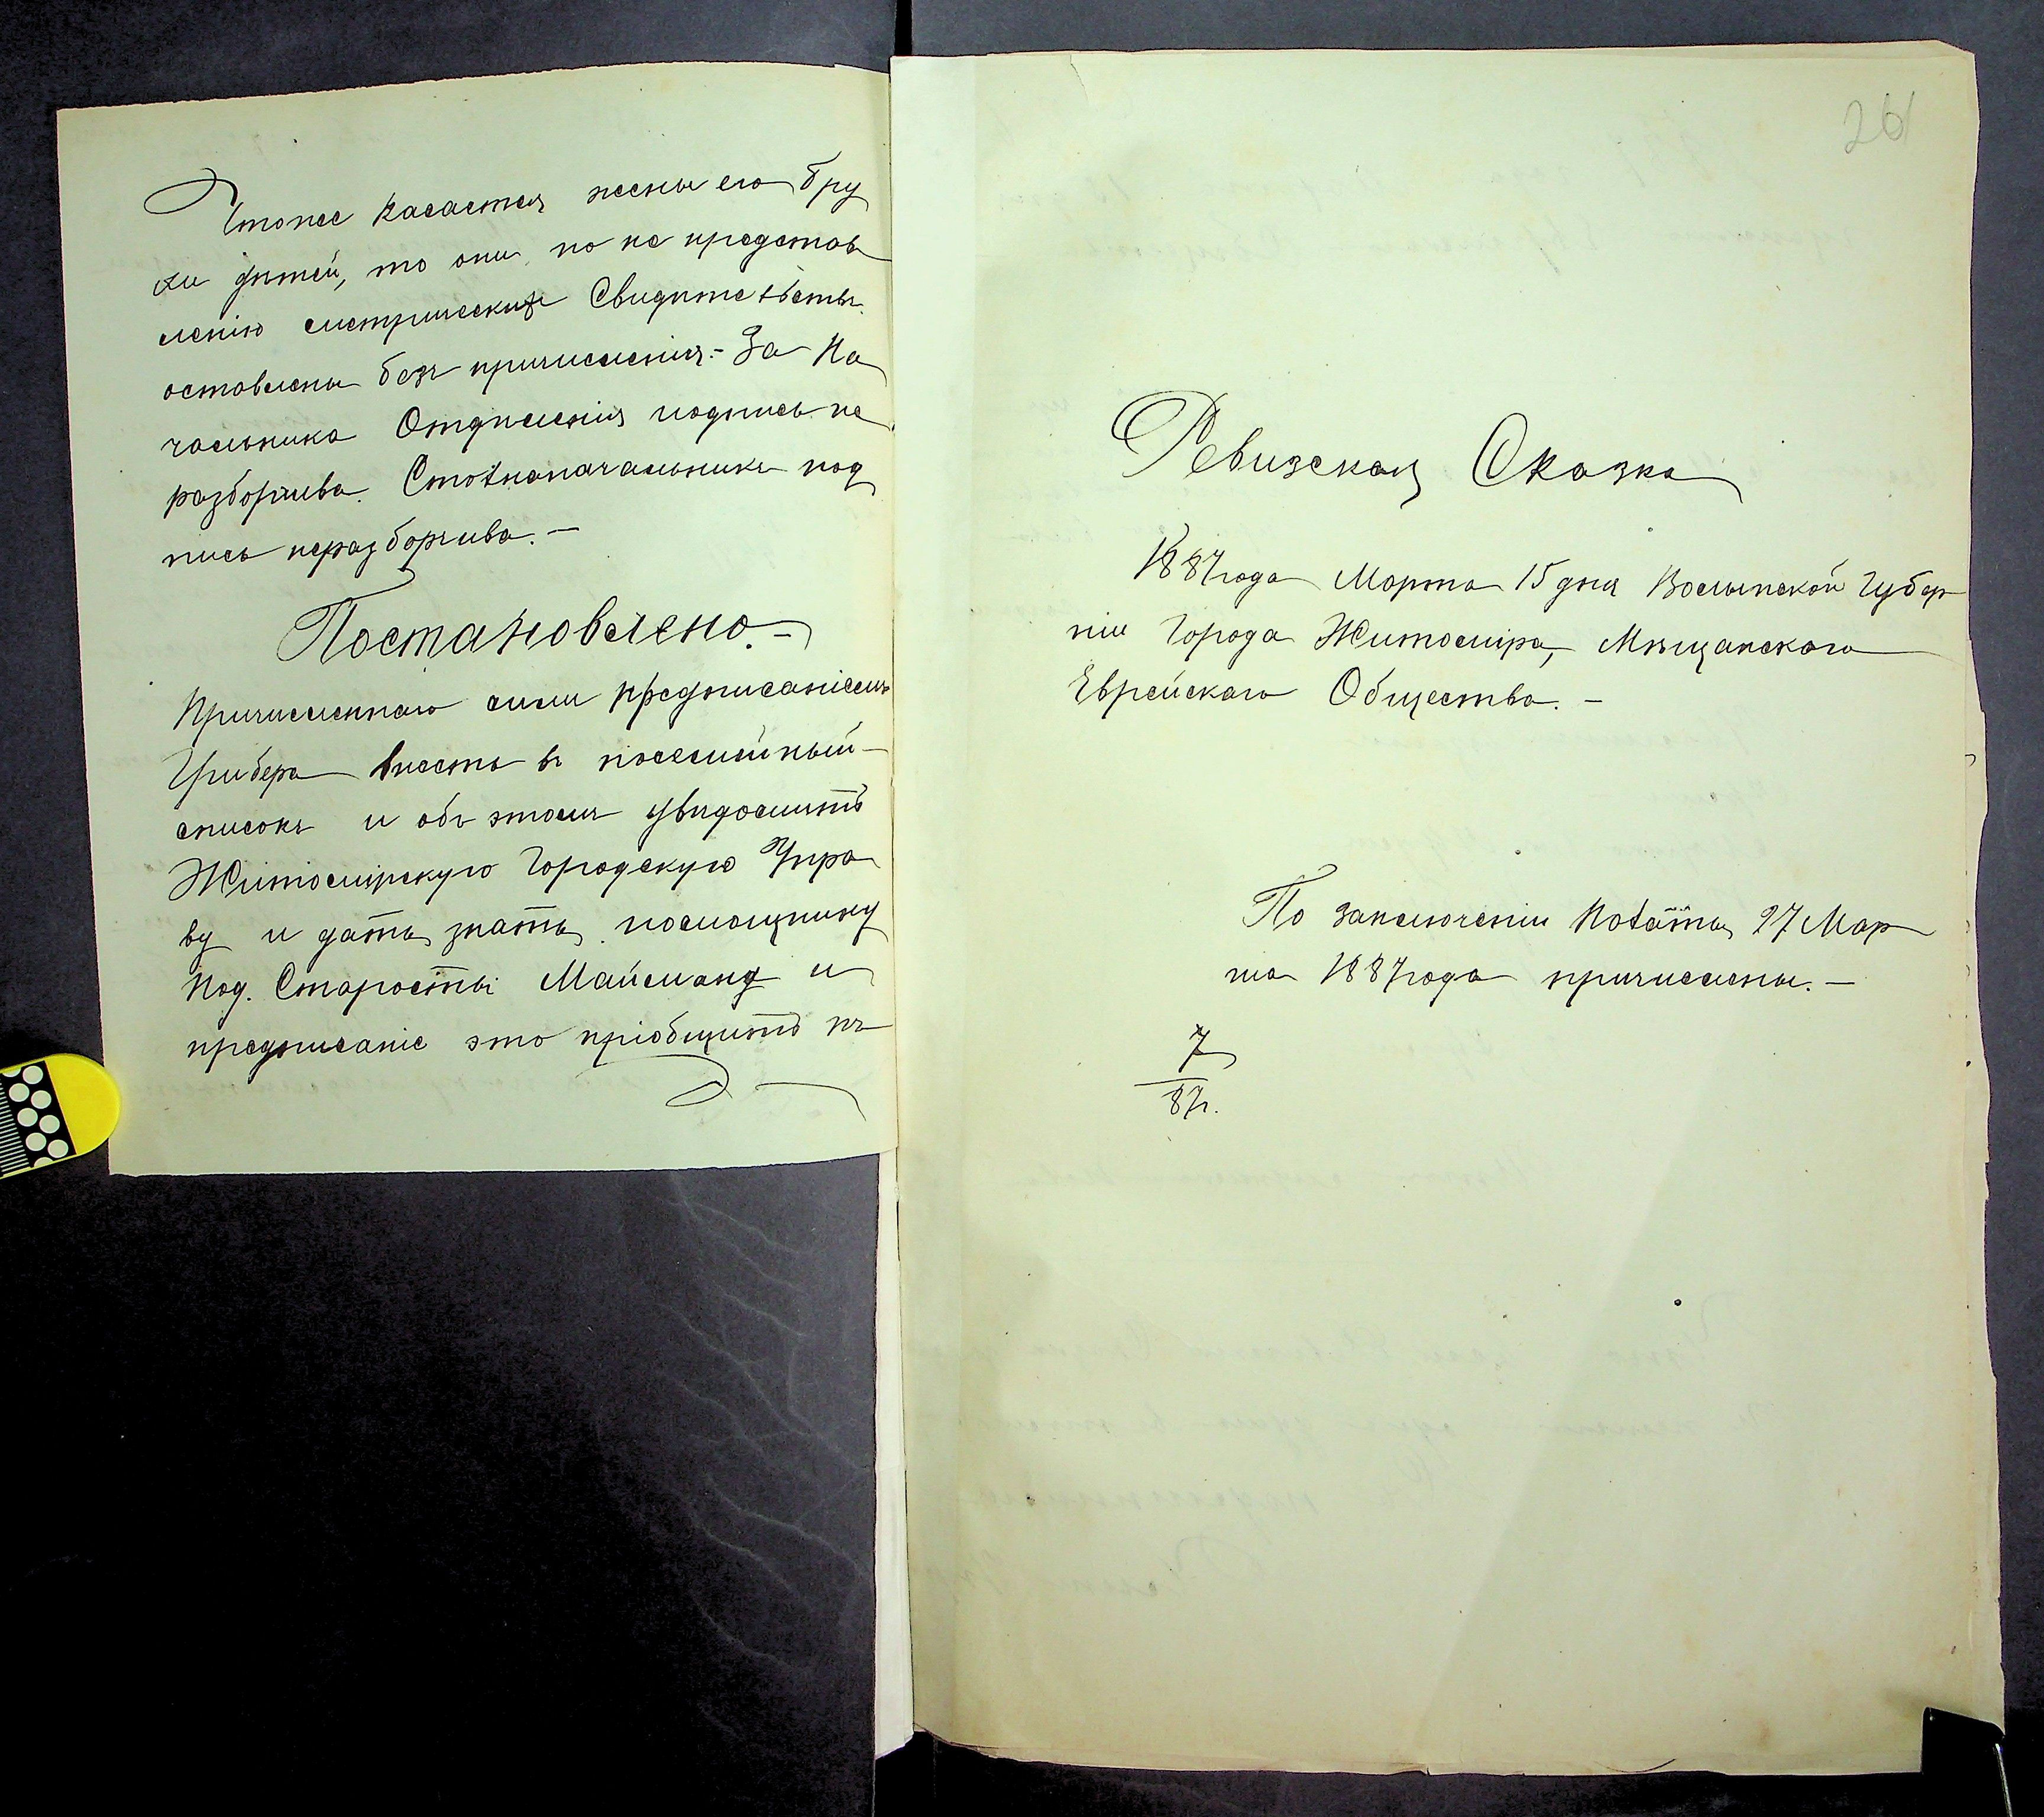 Чтоже касается жены его Бру
хи дѣтей, то они, по не представ
ленію метрическихъ Свидѣтельствъ.
оставлены безъ причисленія.- За На
чальника Отдѣленія подпись не
разборчива. Столоначальника под
пись неразборчива.-
Постановлено.-
Причисленнаго симъ предписаніемъ
Грибера внести въ посемейный
списокъ и объ этомъ увѣдомить
Житомірскую Городскую Упра
ву и дать знать помощнику
Под. Старосты Майману и
предписаніе это пріобщить къ
261
Ревизская Сказка
1887 года Марта 15 дня Волынской Губер
ніи Города Житоміра, Мѣщанскаго
Еврейскаго Общества.-
По заключеніи Палаты 27 Мар
та 1887 года причислены.-
7
87г.